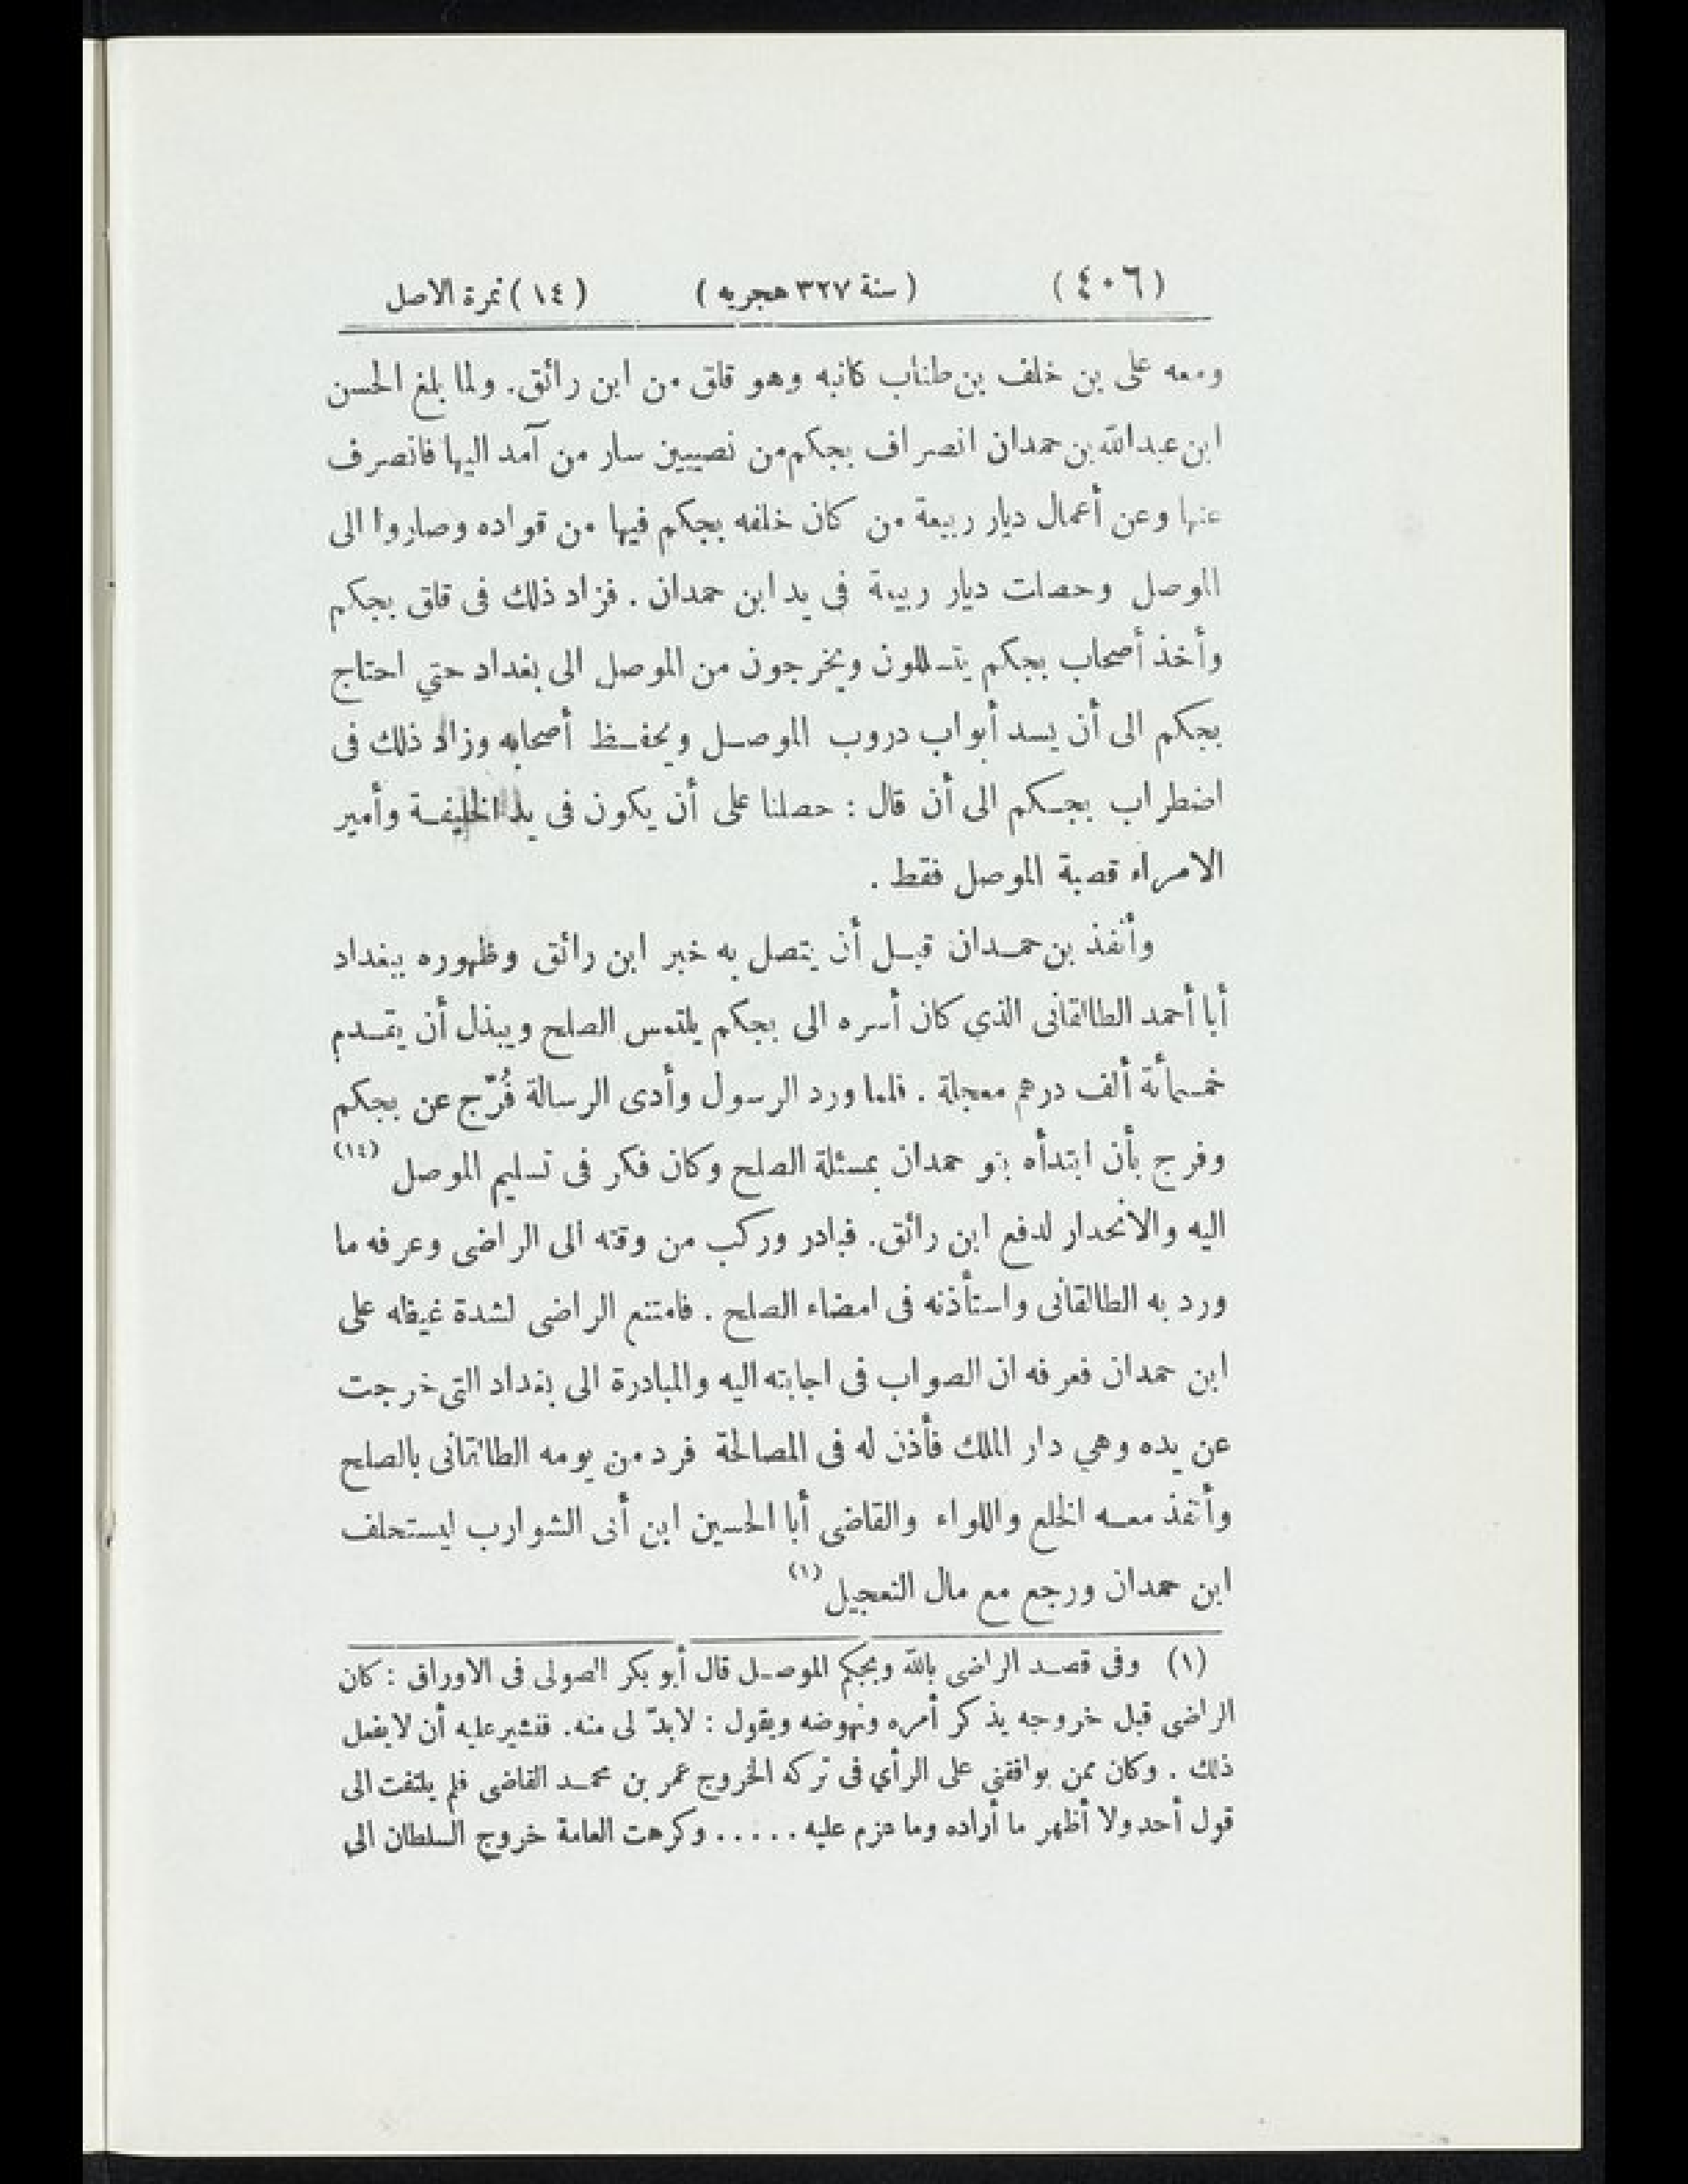 (٤٠٦) (سنة ٣٢٧ هجريه) (١٤) نمرة الاصل
ومعه على بن خلف بن طناب كاتبه وهو قلق من ابن رائق. ولما بلغ الحسن
ابن عبد الله بن حمدان انصراف بجكم من نصيبين سار من آمد اليها فانصرف
عنها وعن أعمال ديار ربيعة من كان خلفه بجكم فيها من قواده وصاروا الى
الموصل وحصلت ديار ربيعة فى يد ابن حمدان . فزاد ذلك فى قلق بجكم
وأخذ أصحاب بجكم يتسللون ويخرجون من الموصل الى بغداد حتي احتاج
بجكم الى أن يسد أبواب دروب الموصل ويحفظ أصحابه وزاد ذلك فى
اضطراب بجكم الى أن قال : حصلنا على أن يكون فى يد الخليفة وأمير
الامراء قصبة الموصل فقط .
وأنفذ بن حمدان قبل أن يتصل به خبر ابن رائق وظهوره ببغداد
أبا أحمد الطالقانى الذي كان أسره الى بجكم يلتمس الصلح ويبذل أن يقدم
خمسمأئة ألف درهم معجلة . فلما ورد الرسول وأدى الرسالة فُرّج عن بجكم
وفرج بأن ابتدأه بنو حمدان بمسئلة الصلح وكان فكر فى تسليم الموصل (١٤)
اليه والانحدار لدفع ابن رائق. فبادر وركب من وقته الى الراضى وعرفه ما
ورد به الطالقانى واستأذنه فى امضاء الصلح . فامتنع الراضى لشدة غيظه على
ابن حمدان فعرفه ان الصواب فى اجابته اليه والمبادرة الى بغداد التى خرجت
عن يده وهي دار الملك فأذن له فى المصالحة فرد من يومه الطالقانى بالصلح
وأنفذ معه الخلع واللواء والقاضى أبا الحسين ابن أبى الشوارب ليستحلف
ابن حمدان ورجع مع مال التعجيل (١)
(١) وفى قصد الراضى بالله وبجكم الموصل قال أبو بكر الصولى فى الاوراق : كان
الراضى قبل خروجه يذكر أمره ونهوضه ويقول : لابدّ لى منه. فنشير عليه أن لا يفعل
ذلك . وكان ممن يوافقني على الرأي فى تركه الخروج عمر بن محمد القاضى فلم يلتفت الى
قول أحد ولا أظهر ما أراده وما عزم عليه ..... وكرهت العامة خروج السلطان الى